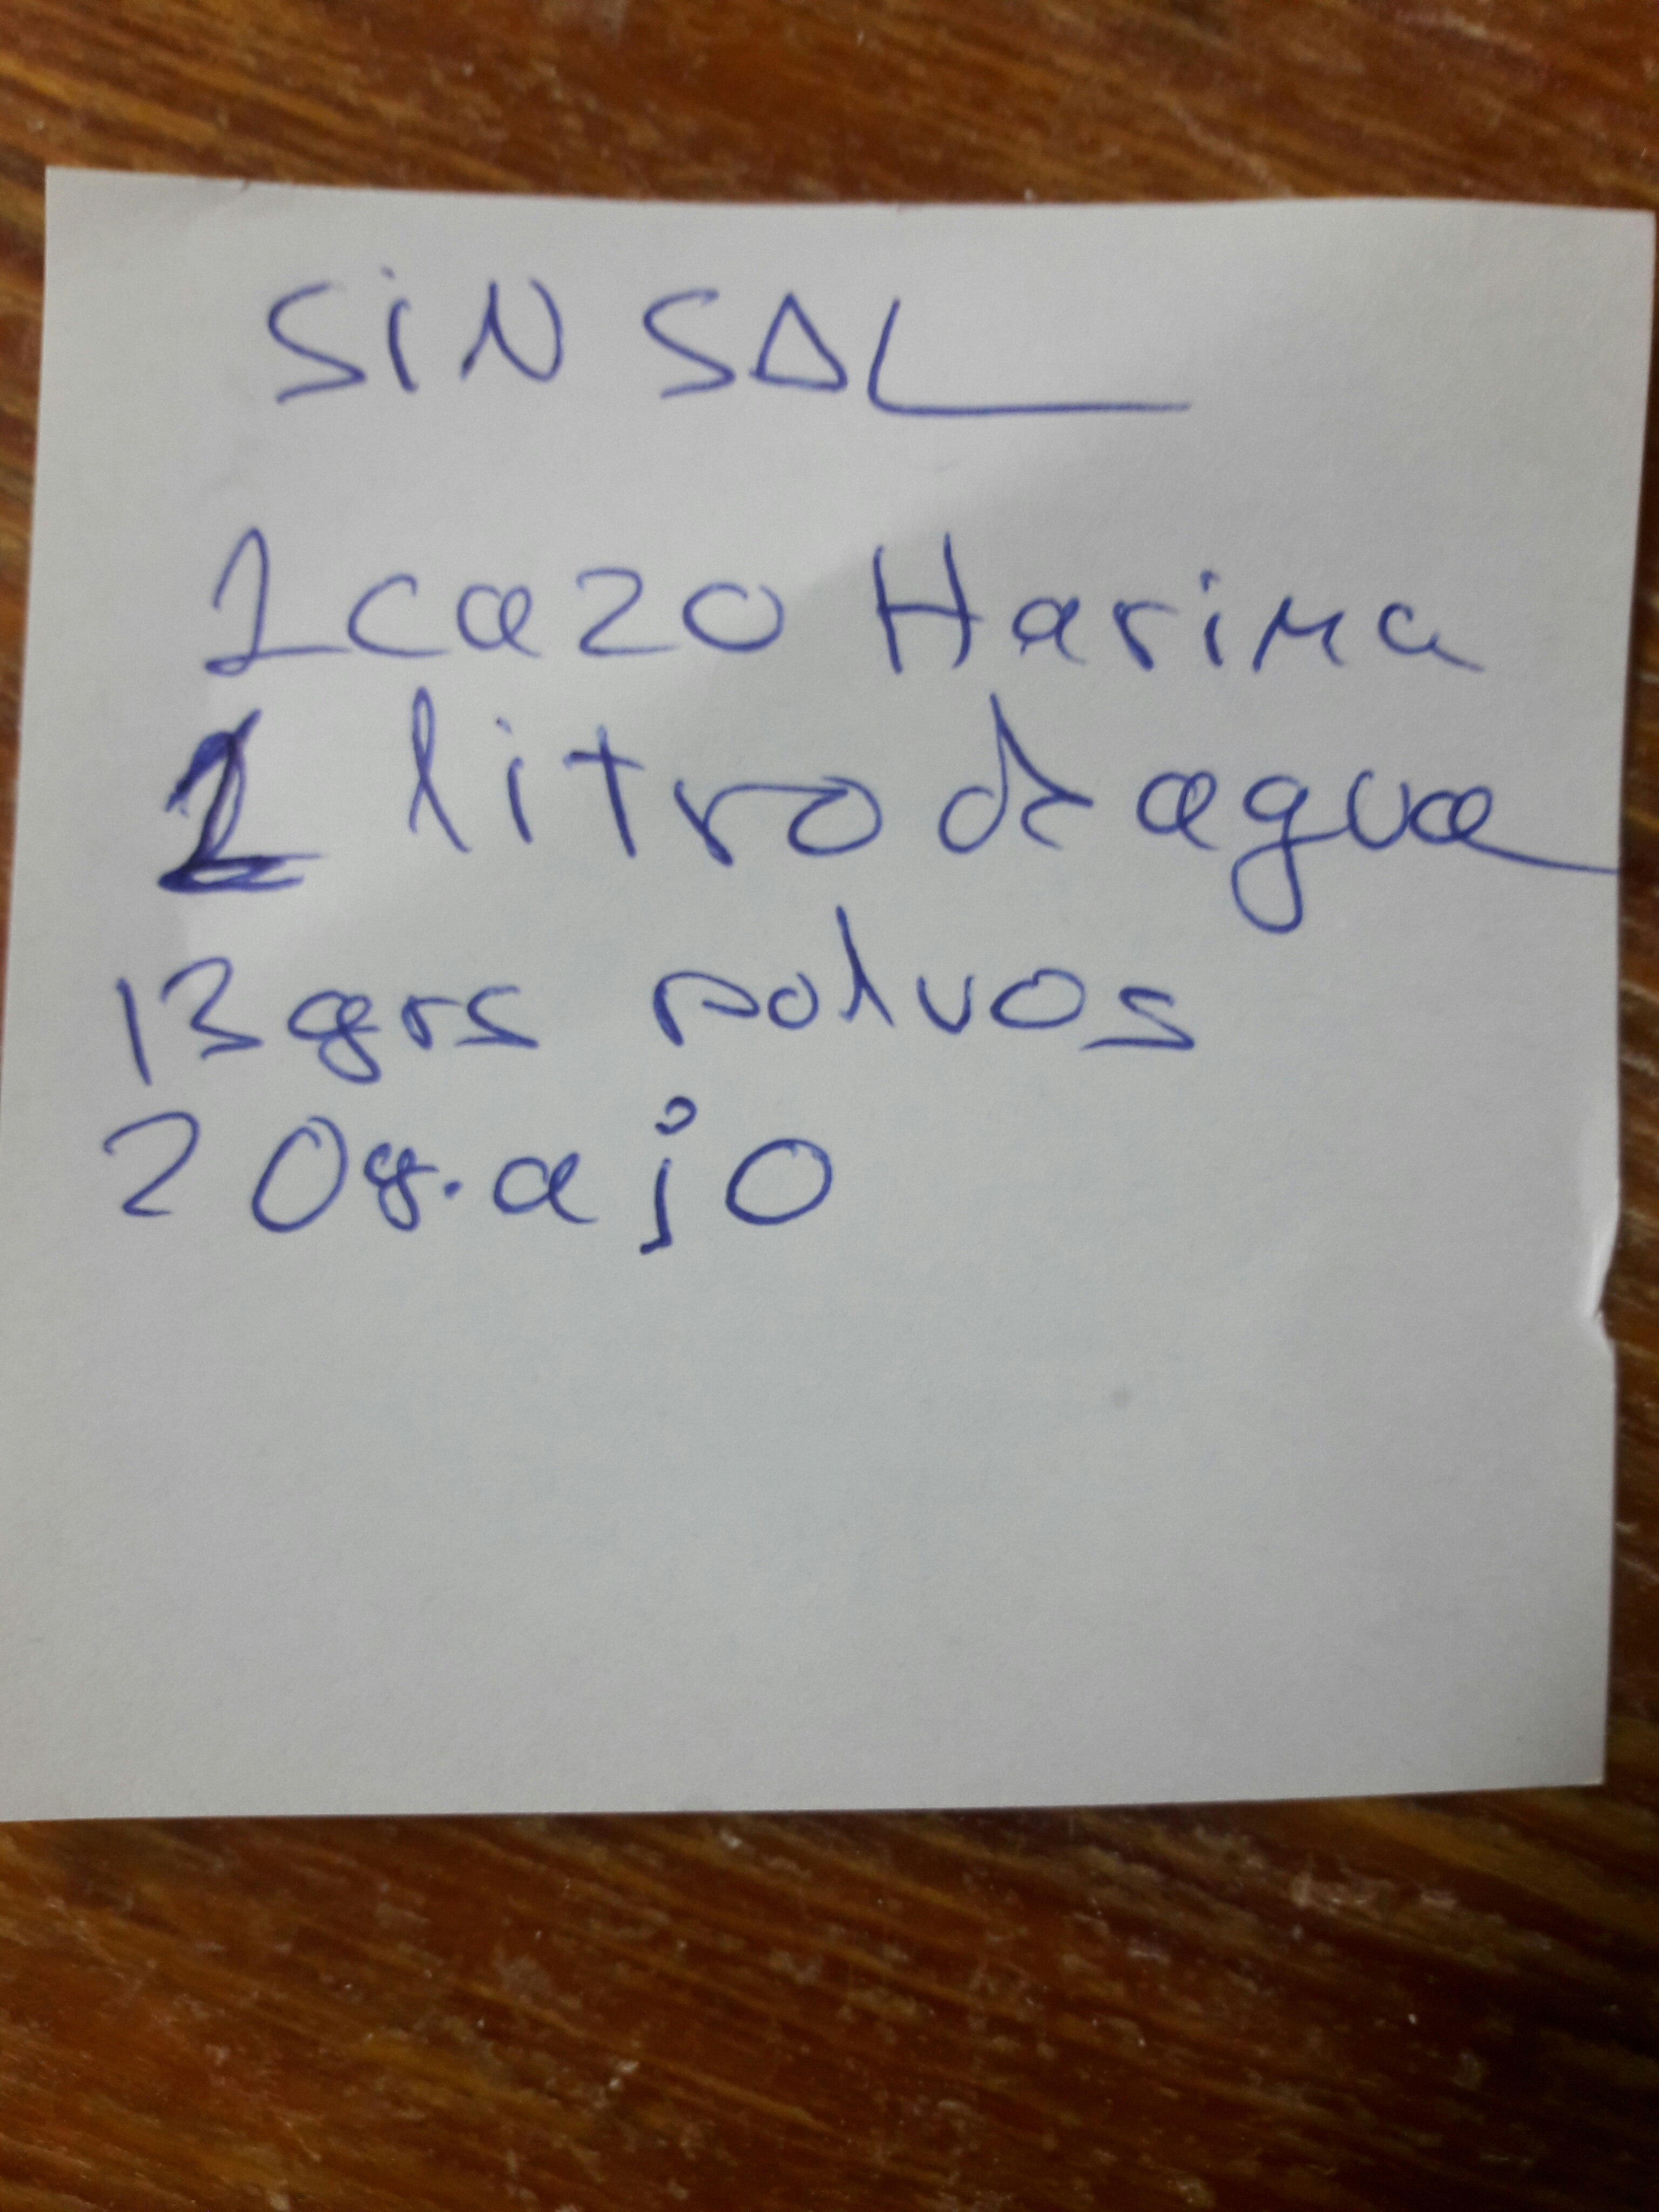 SiN SAL
1 cazo Harina
1 litro de agua
13 grs polvos
20g. ajo